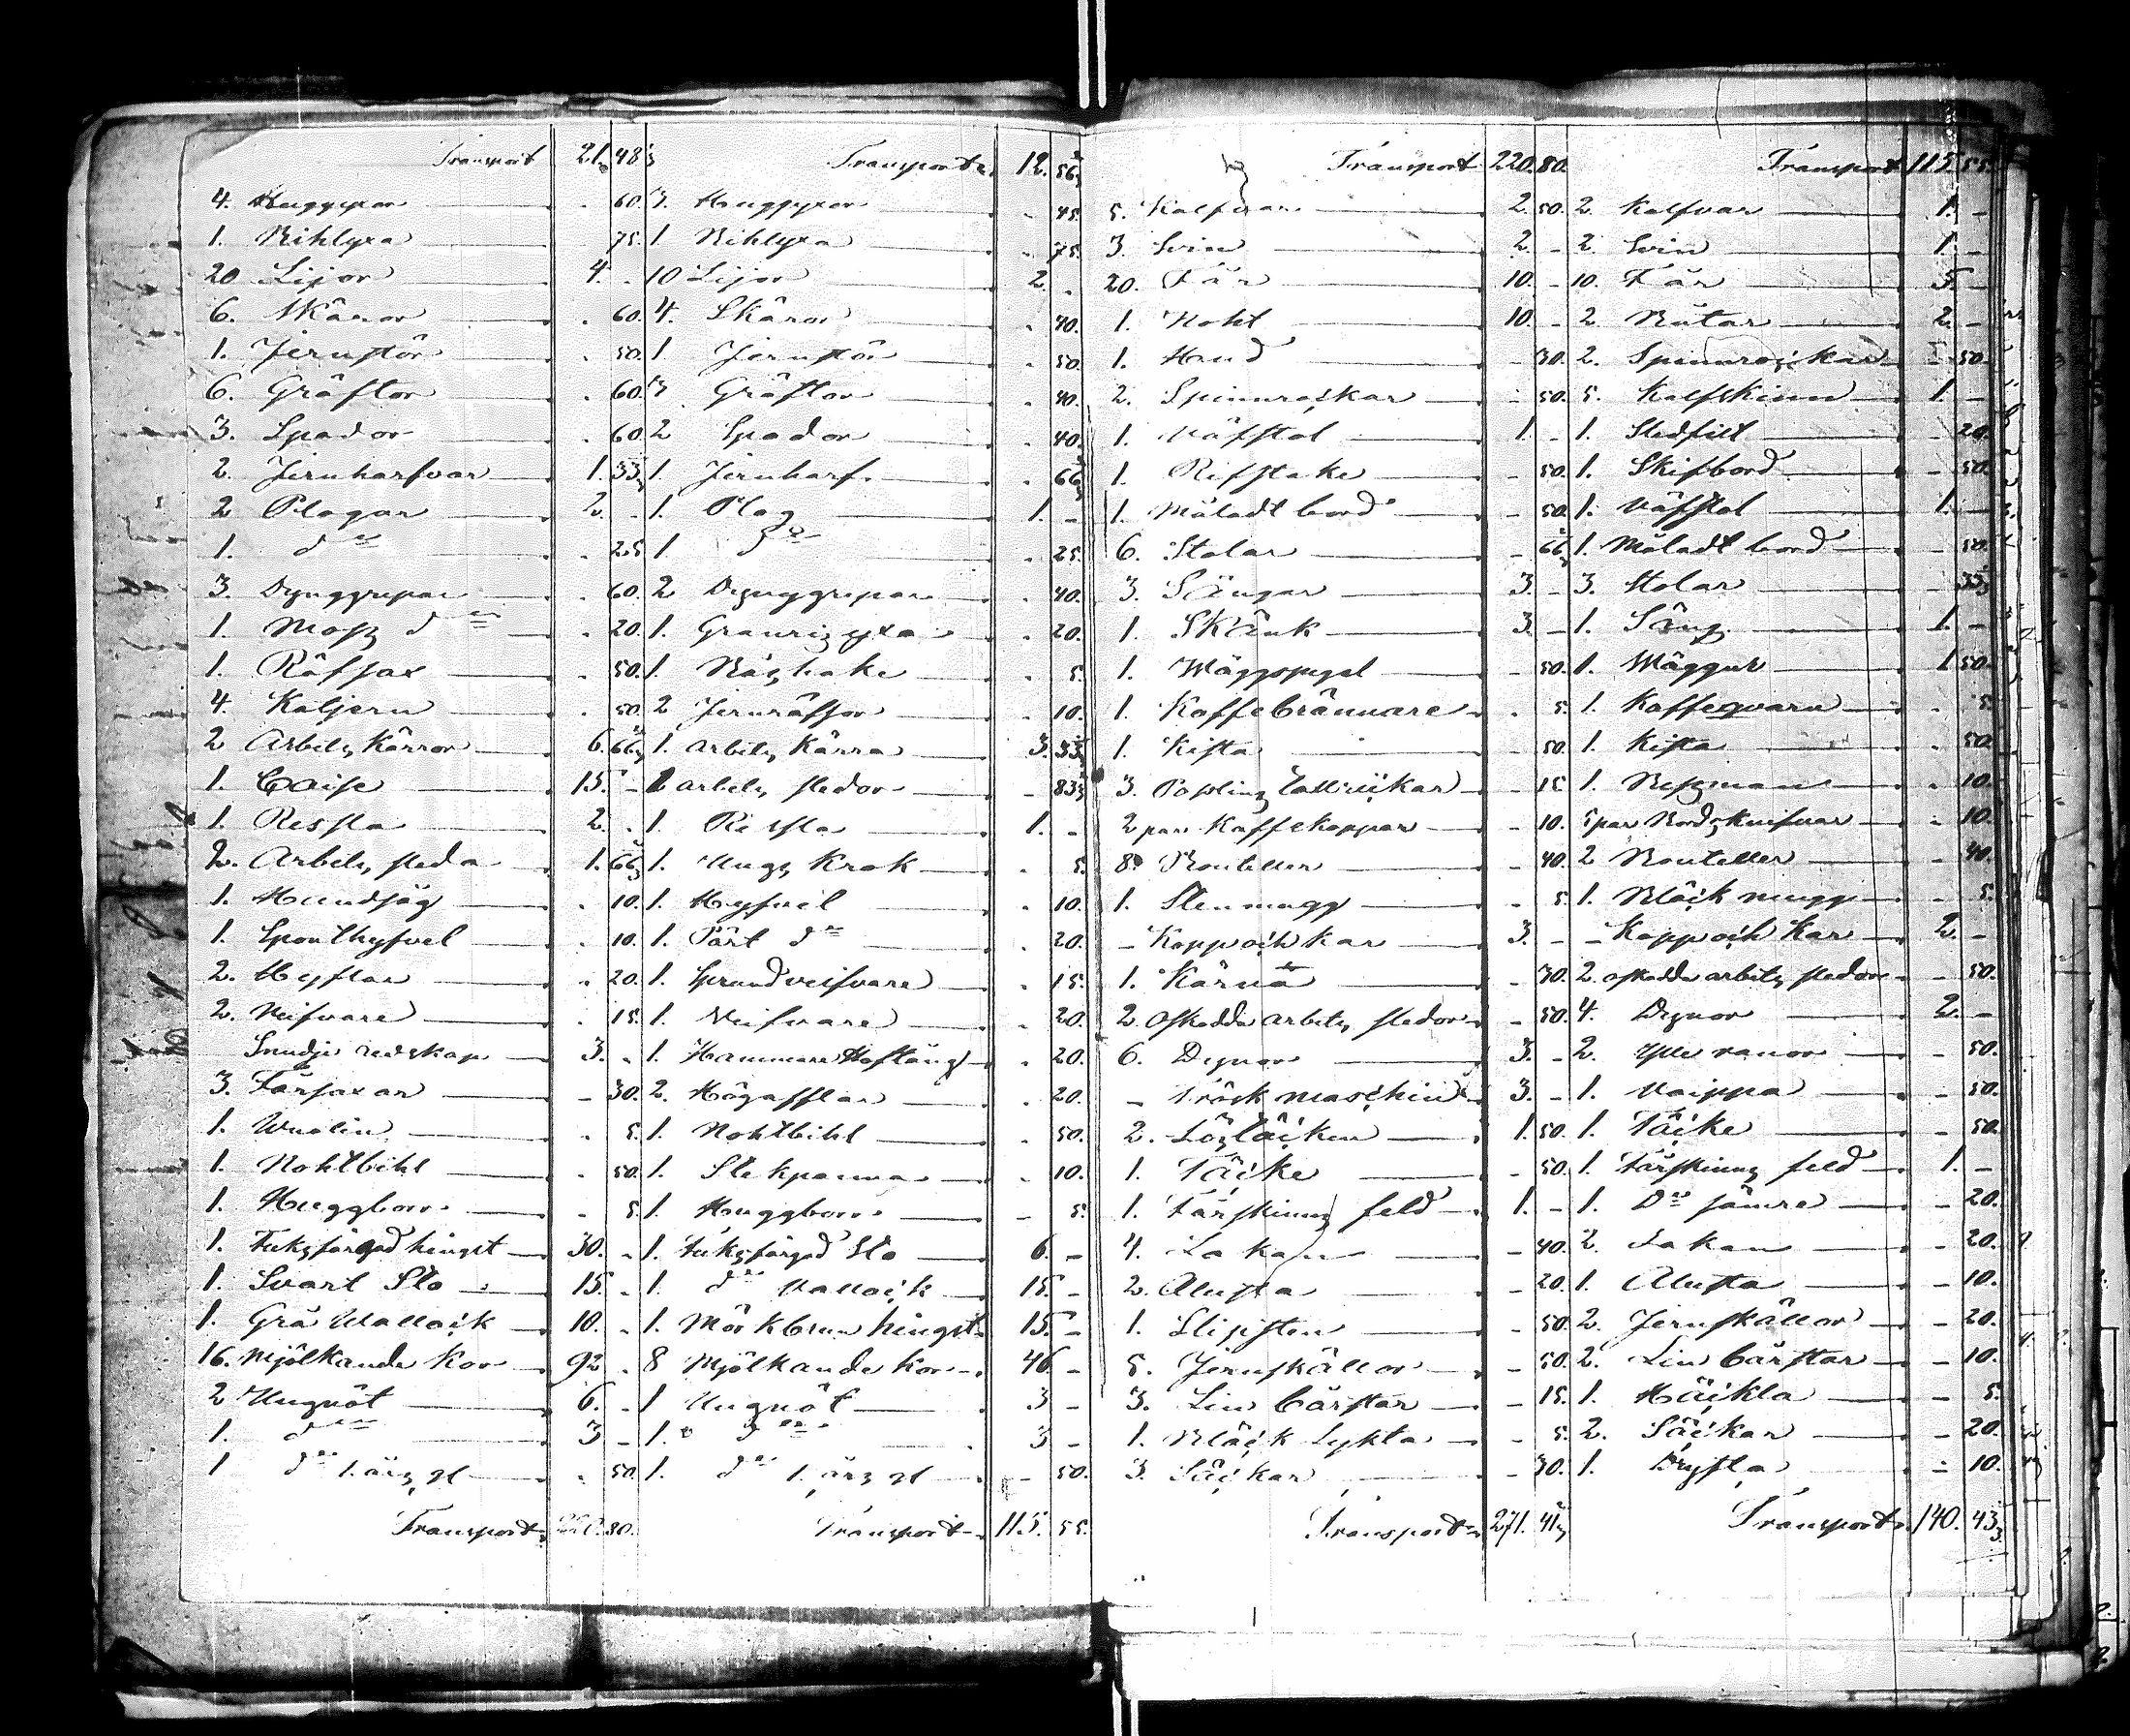 Transport 21. 48
4. Huggyxor . 60.
1. Bihlyxa 75.
20 Lijor 4. .
6. Skäror . 60.
1. Jernstör . 50.
6. Gräftor . 60.
3. Spador . 60.
2. Jernharfvar 1. 33
2 Plogar 2. -
1. d:o . 25
3. Dynggrepar . 60.
1. Moss d:o . 20.
1. Räfsax . 50.
4. Kaljern . 50
2 Arbets Kärror 6. 66
1. Chaise 15. -
1. Ressla 2. .
2. Arbets sleda 1. 66
1. Handsåg . 10.
1. Sponthyfvel . 10.
2. Hyflar . 20.
2. Neifvare . 15.
Smidje redskap 3. .
3. Fårsaxar - 30.
1. Wiolin . 5.
1. Nohtbiht . 50.
1. Huggborr - 5.
1. Fuksfärgad hingst 30. -
1. Svart Sto 15. -
1. Grå Wallack 10. -
16. Mjölkande Kor 92 .
2 Ungnöt 6. -
1. d:o 3 -
1 d:o 1. års gl . 50.
Transport 220. 80.
Transport 12. 56
3. Huggyxor . 45.
1 Bihlyxa . 75.
10 Lijor 2. .
4. Skäror . 40.
1. Jernstör . 50.
Gräftor . 40.
2 Spador . 40.
1. Jernharf . 66
1. Plog 1. -
1 d:o . 25.
2 Dynggrepar . 40.
1. Granrisyxa . 20.
1. Båshake . 5.
2 Jernräfsor . 10.
1. arbets Kärra 3. 33
arbets sledor - 83
1. Ressla 1. -
1. Ungs Krok . 5.
1. Hyfvel . 10.
1. Pärt d:o . 20.
1. Spundreifvare . 15.
1. Neifvare . 20.
1. Hammare Hoftång . 20.
2. Högafflar . 20.
1. Nohtbiht . 50.
1. Stekpanna . 10.
1. Huggborr - 5.
1. Fuksfärgad Sto 6. -
1. d:o Vallack 15. -
1. Mörkbrun hingst 15. -
8 Mjölkande Kor 46 -
1 Ungnöt 3 -
1. d:o 3 -
1. d:o 1. års gl - 50.
Transport 115. 55.
Transport 220. 80.
5. Kalfvar 2. 50.
3. Svin 2 -
20. Får 10. -
1. Noht 10. -
1. Hund - 30.
2. Spinnrockar - 50.
1. Väfstol 1. -
1. Rifstake - 50.
1. Måladt bord - 50.
6. Stolar - 66
3. Sängar 3. -
1. Skänk 3. -
1. Wäggspegel - 50.
1. Kaffebrännare . 5.
1. Kista - 50.
3. Poslins tallrickar - 15
2 par Kaffekoppar - 10.
8 Bouteller - 40.
1. Stenmugg - 5.
- Kopp och Kar 3. -
1. Kärna - 30.
2. oskodda arbets sledor - 50.
6. Dynor 3. -
- Trösk maschin 3. -
2. Löstäcken 1. 50.
1. Täcke - 50.
1. Fårskinns feld 1. -
4. Lakan - 40.
2. Alusta - 20.
1. Slipsten - 50.
5. Jernskållor - 50.
3. Lin bårstar - 15.
1. Bläck Lykta - 5.
3. Säckar - 30.
Transport 271. 41
Transport 115. 55.
2. Kalfvar 1. -
2. Svin 1. -
10. Får 5. -
2 Båtar 2 -
2. Spinnrockar - 50.
5. Kalfskinn 1. -
1. Sledfilt - 20.
1. Skifbord - 50.
1. Väfstol 1. -
1. Måladt bord - 50.
3. Stolar - 33
1. Säng 1. -
1. Wäggur 1 50.
1. Kaffeqvarn . 5.
1. Kista . 50.
1. Bessman . 10.
5 par Bords Knifvar - 10.
2 Bouteller - 40.
1. Bläck mugg - 5.
- Kopp och Kar 2. -
2. oskodda arbets sledor - 50.
4. Dynor 2. -
2. Ylle ranor - 50.
1. Vaippa - 50.
1. Täcke - 50.
1. Fårskinns feld 1. -
1. D:o sämre - 20.
2. Lakan - 20.
1. Alusta - 10.
2. Jernskållor - 20.
2. Lin bårstar - 10.
1. Häckla - 5.
2. Säckar - 20.
1. Dryfta - 10.
Transport 140. 43